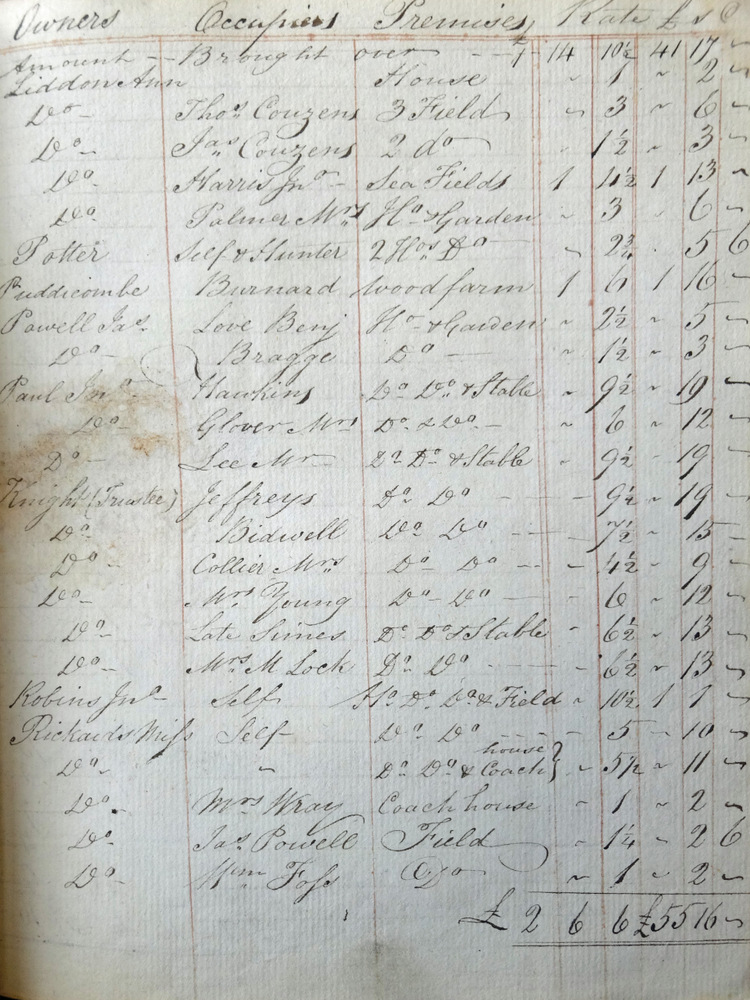 Owners Occupiers Premises Rate £ s d
Amount - - Brought over - - 1 14 10½ 41 17 ~
Liddon Ann House ~ 1 ~ 2 ~
Do - Thos Couzens 3 Field ~ 3 ~ 6 ~
Do - Jas Couzens 2 do ~ 1½ ~ 3 ~
Do - Harris Jno - Sea Fields 1 4½ 1 13 ~
Do Palmer Mrs Ho & Garden ~ 3 ~ 6 ~
Potter Self & Hunter 2 Hos Do - ~ 2¾ . 5 6
Puddicombe Burnard Wood farm 1 6 1 16 ~
Powell Jas Love Benj Ho - & Garden ~ 2½ ~ 5 ~
Do - Bragge Do - ~ 1½ ~ 3 ~
Paul Jno Hawkins Do Do & Stable ~ 9½ ~ 19 ~
Do - Glover Mrs Do & Do - ~ 6 ~ 12 ~
Do - Lee Mr Do Do & Stable ~ 9½ - 19 ~
Knight (Trustee) Jeffreys Do Do - - 9½ - 19 ~
Do - Bidwell Do Do - - - 7½ - 15 ~
Do - Collier Mrs Do - Do - - - 4½ - 9 ~
Do - Mrs Young Do - Do - - - 6 ~ 12 ~
Do - Late Simes Do Do & Stable - 6½ ~ 13 ~
Do - Mrs M Lock Do Do - - - 6½ ~ 13 ~
Robins Jno Self Ho Do Do & Field ~ 10½ 1 1 ~
Rickards Miss Self Do Do - - - 5 - 10 ~
Do - " Do Do & Coach house } ~ 5½ ~ 11 ~
Do - Mrs Wray Coach house ~ 1 ~ 2 ~
Do - Jas Powell Field ~ 1¼ ~ 2 6
Do - Wm Foss Do ~ 1 ~ 2 ~
£ 2 6 6 £55 16 ~